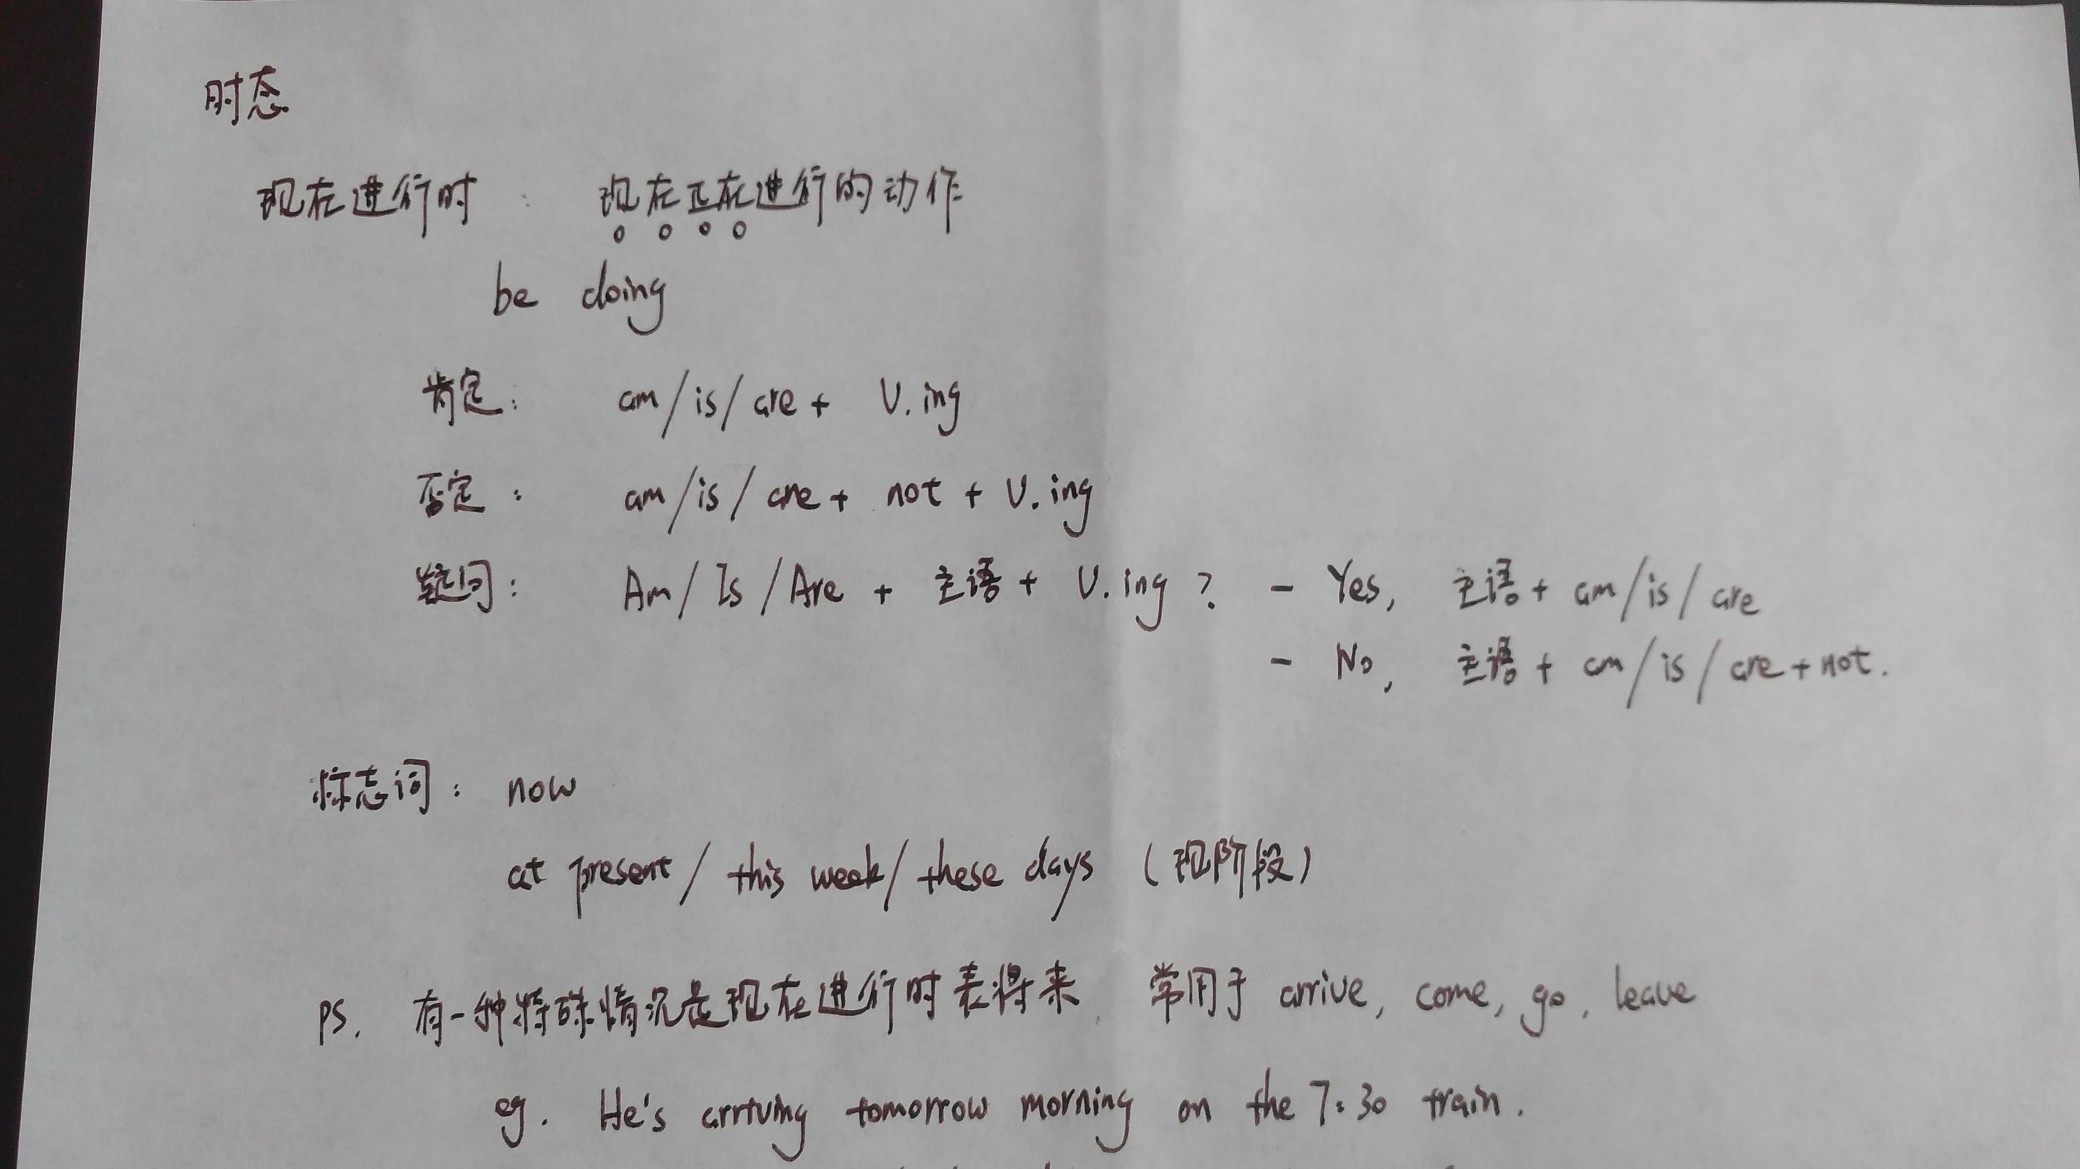 时态
现在进行时： 现在正在进行的动作
be doing
肯定： am/is/are + V.ing
否定： am/is/are + not + V.ing
疑问： Am/Is/Are + 主语 + V.ing? - Yes, 主语 + am/is/are
- No, 主语 + am/is/are + not.
标志词： now
at present/ this week/ these days (现阶段)
PS. 有一种特殊情况是现在进行时表将来, 常用于 arrive, come, go, leave
eg. He's arriving tomorrow morning on the 7:30 train.